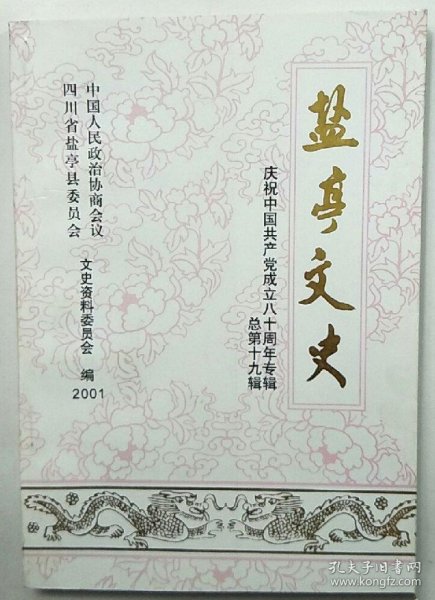 盐亭文史
庆祝中国共产党成立八十周年专辑
总第十九辑
中国人民政治协商会议
四川省盐亭县委员会
文史资料委员会 编
2001
孔夫子旧书网
www.kongfz.com